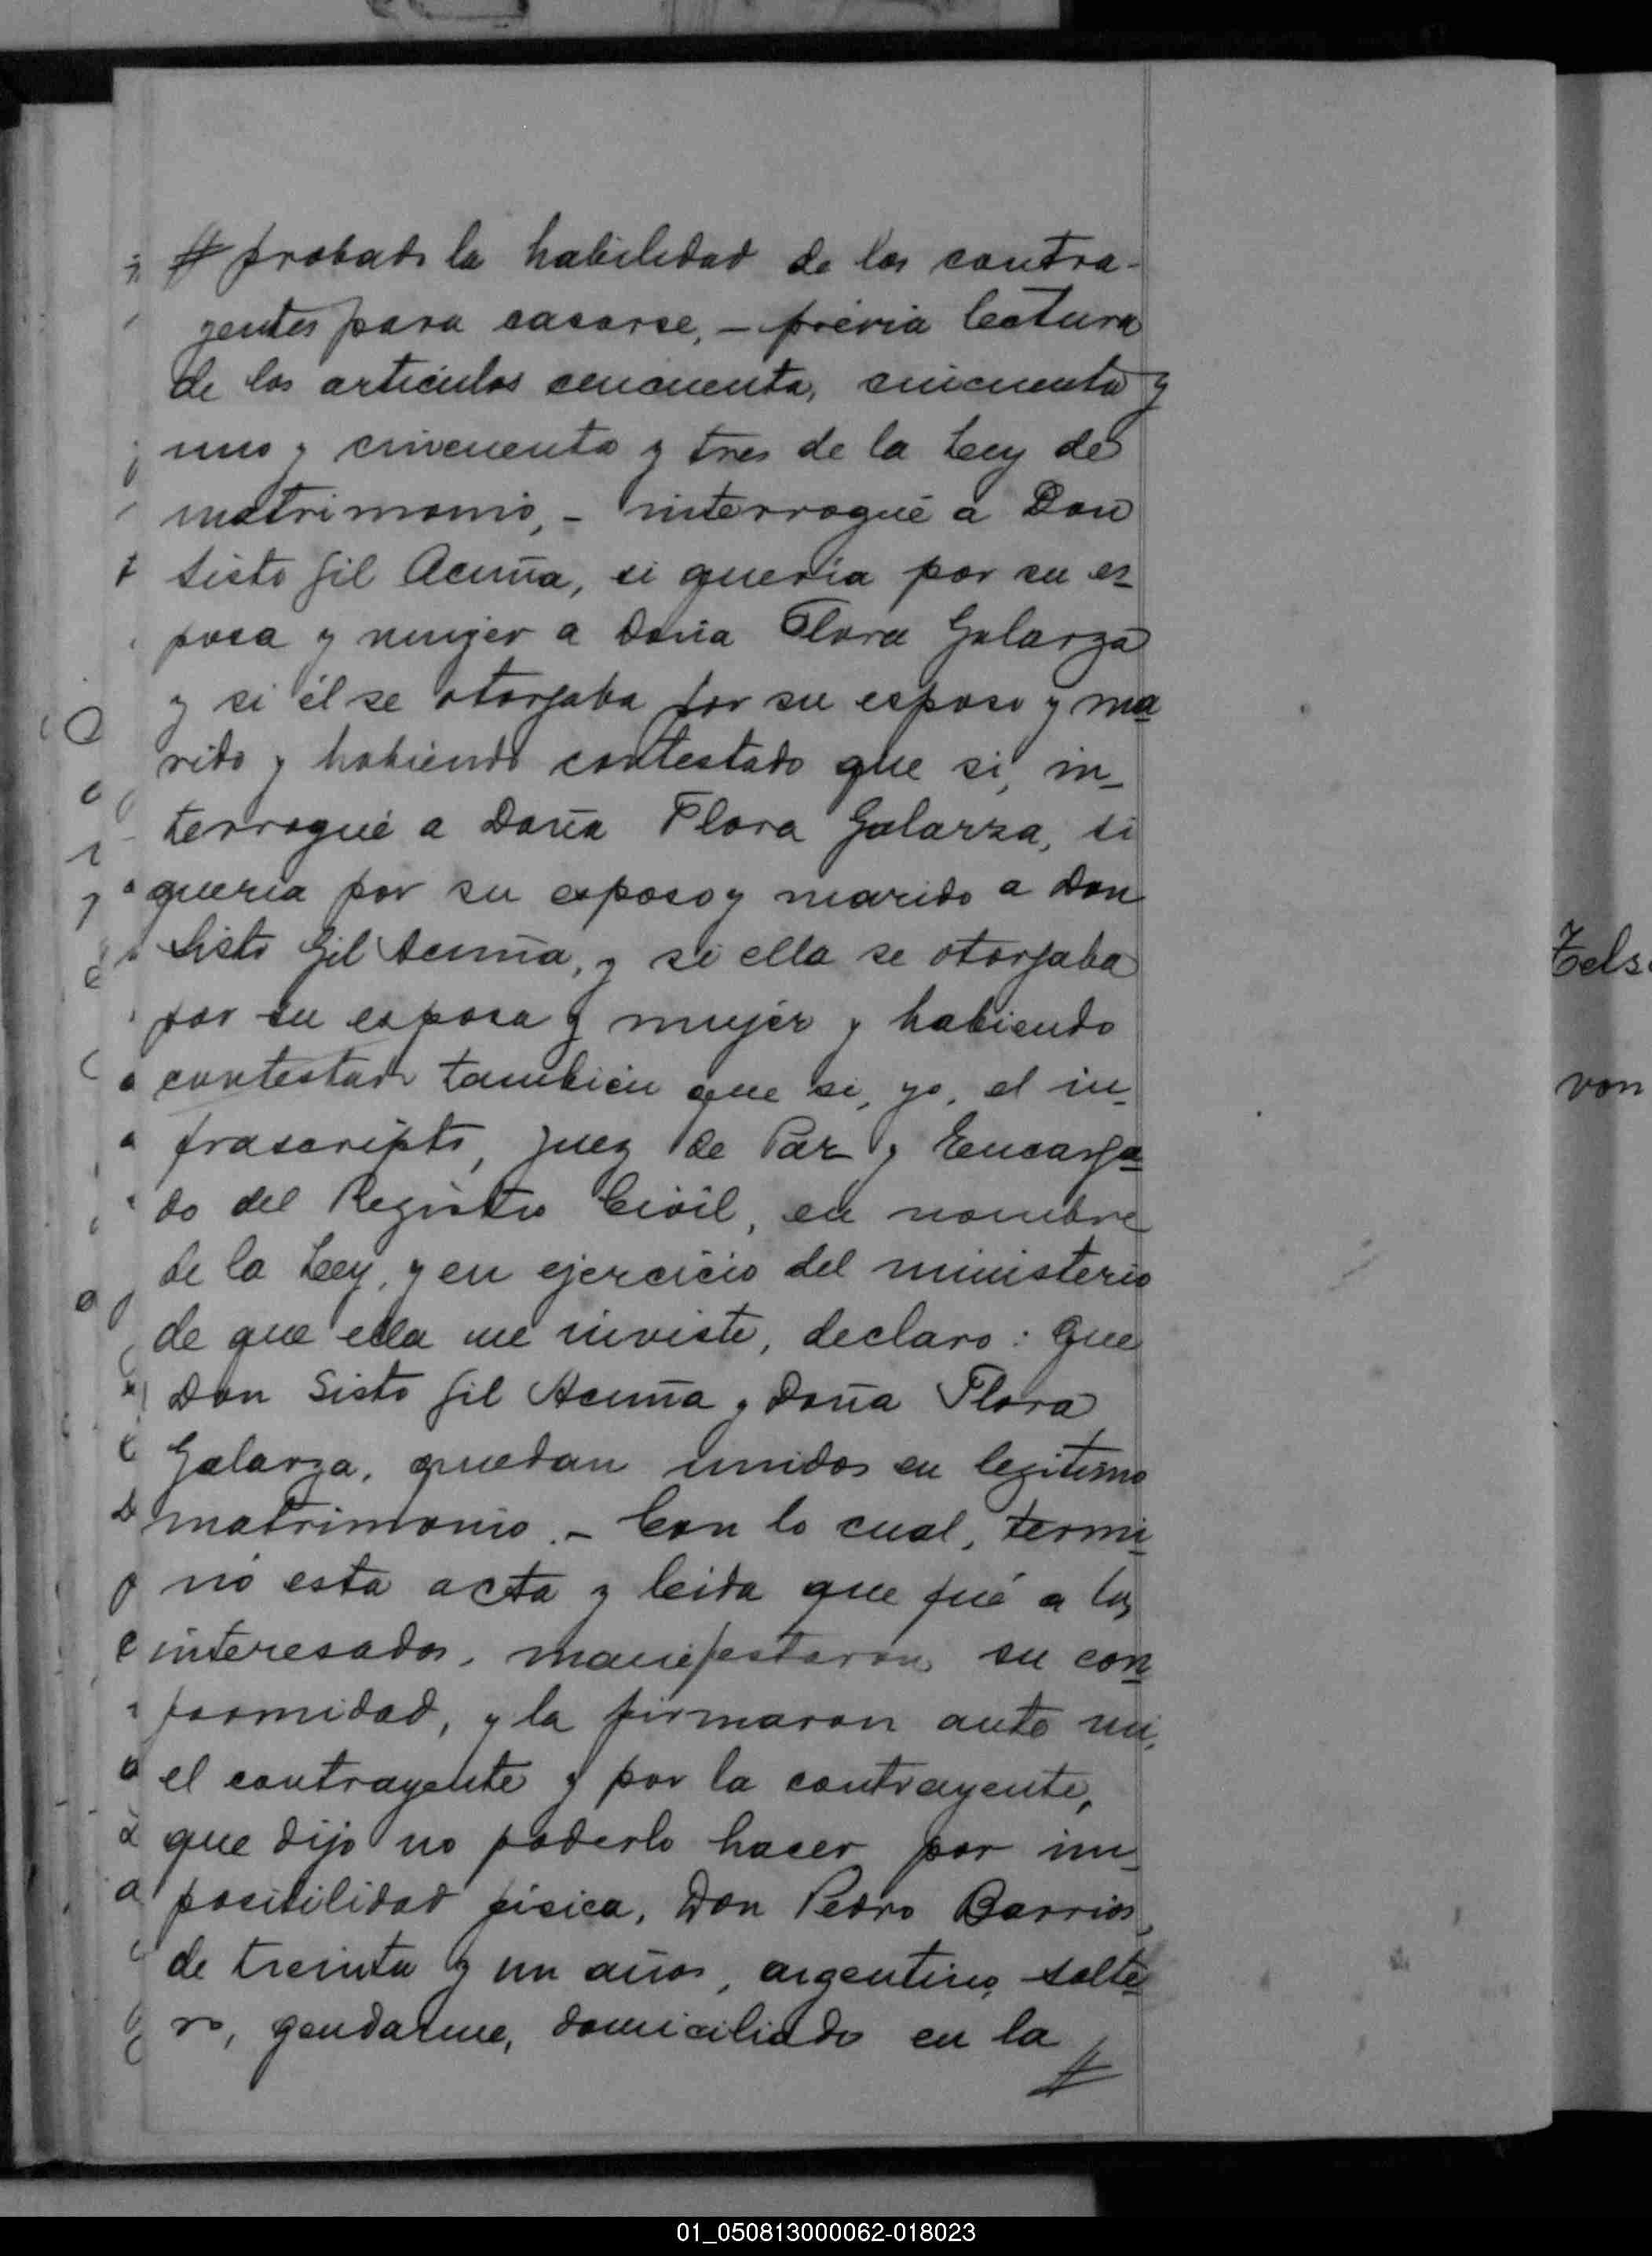 # probado la habilidad de los contra-
yentes para casarse, - prévia lectura
de los artículos cincuenta, cincuenta y
uno y cincuenta y tres de la Ley de
matrimonio, - interrogué a Don
Sisto Gil Acuña, si quería por su es-
posa y mujer a Doña Flora Galarza
y si él se otorgaba por su esposo y ma
rido y habiendo contestado que si, in-
terrogué a Doña Flora Galarza, si
quería por su esposo y marido a Don
Sisto Gil Acuña, y si ella se otorgaba
por su esposa y mujer y habiendo
contestado también que si, yo, el in-
frascripto, Juez de Paz y Encarga
do del Registro Civil, en nombre
de la Ley, y en ejercicio del ministerio
de que ella me inviste, declaro: Que
Don Sisto Gil Acuña y Doña Flora
Galarza, quedan unidos en legítimo
matrimonio. - Con lo cual, termi
nó esta acta y leida que fué a los
interesados, manifestaron su con
formidad, y la firmaron ante mi,
el contrayente y por la contrayente,
que dijo no poderlo hacer por im-
posibilidad física, Don Pedro Barrios,
de treinta y un años, argentino, solte
ro, gendarme, domiciliado en la
#
von
01_050813000062-018023